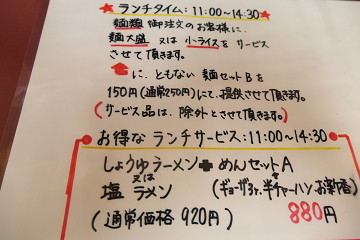 ★ランチタイム:11:00~14:30
麺類 御注文のお客様に、
麺大盛 又は 小ライスを サービス
させて頂きます。
に、ともない 麺セットBを
150円(通常250円)にて、提供させて頂きます。
(サービス品は、除外とさせて頂きます。)
お得な ランチサービス:11:00~14:30
しょうゆラーメン+めんセットA
又は
塩 ラーメン (ギョーザ3ヶ,半チャーハン,お新香)
(通常価格 920円) 880円